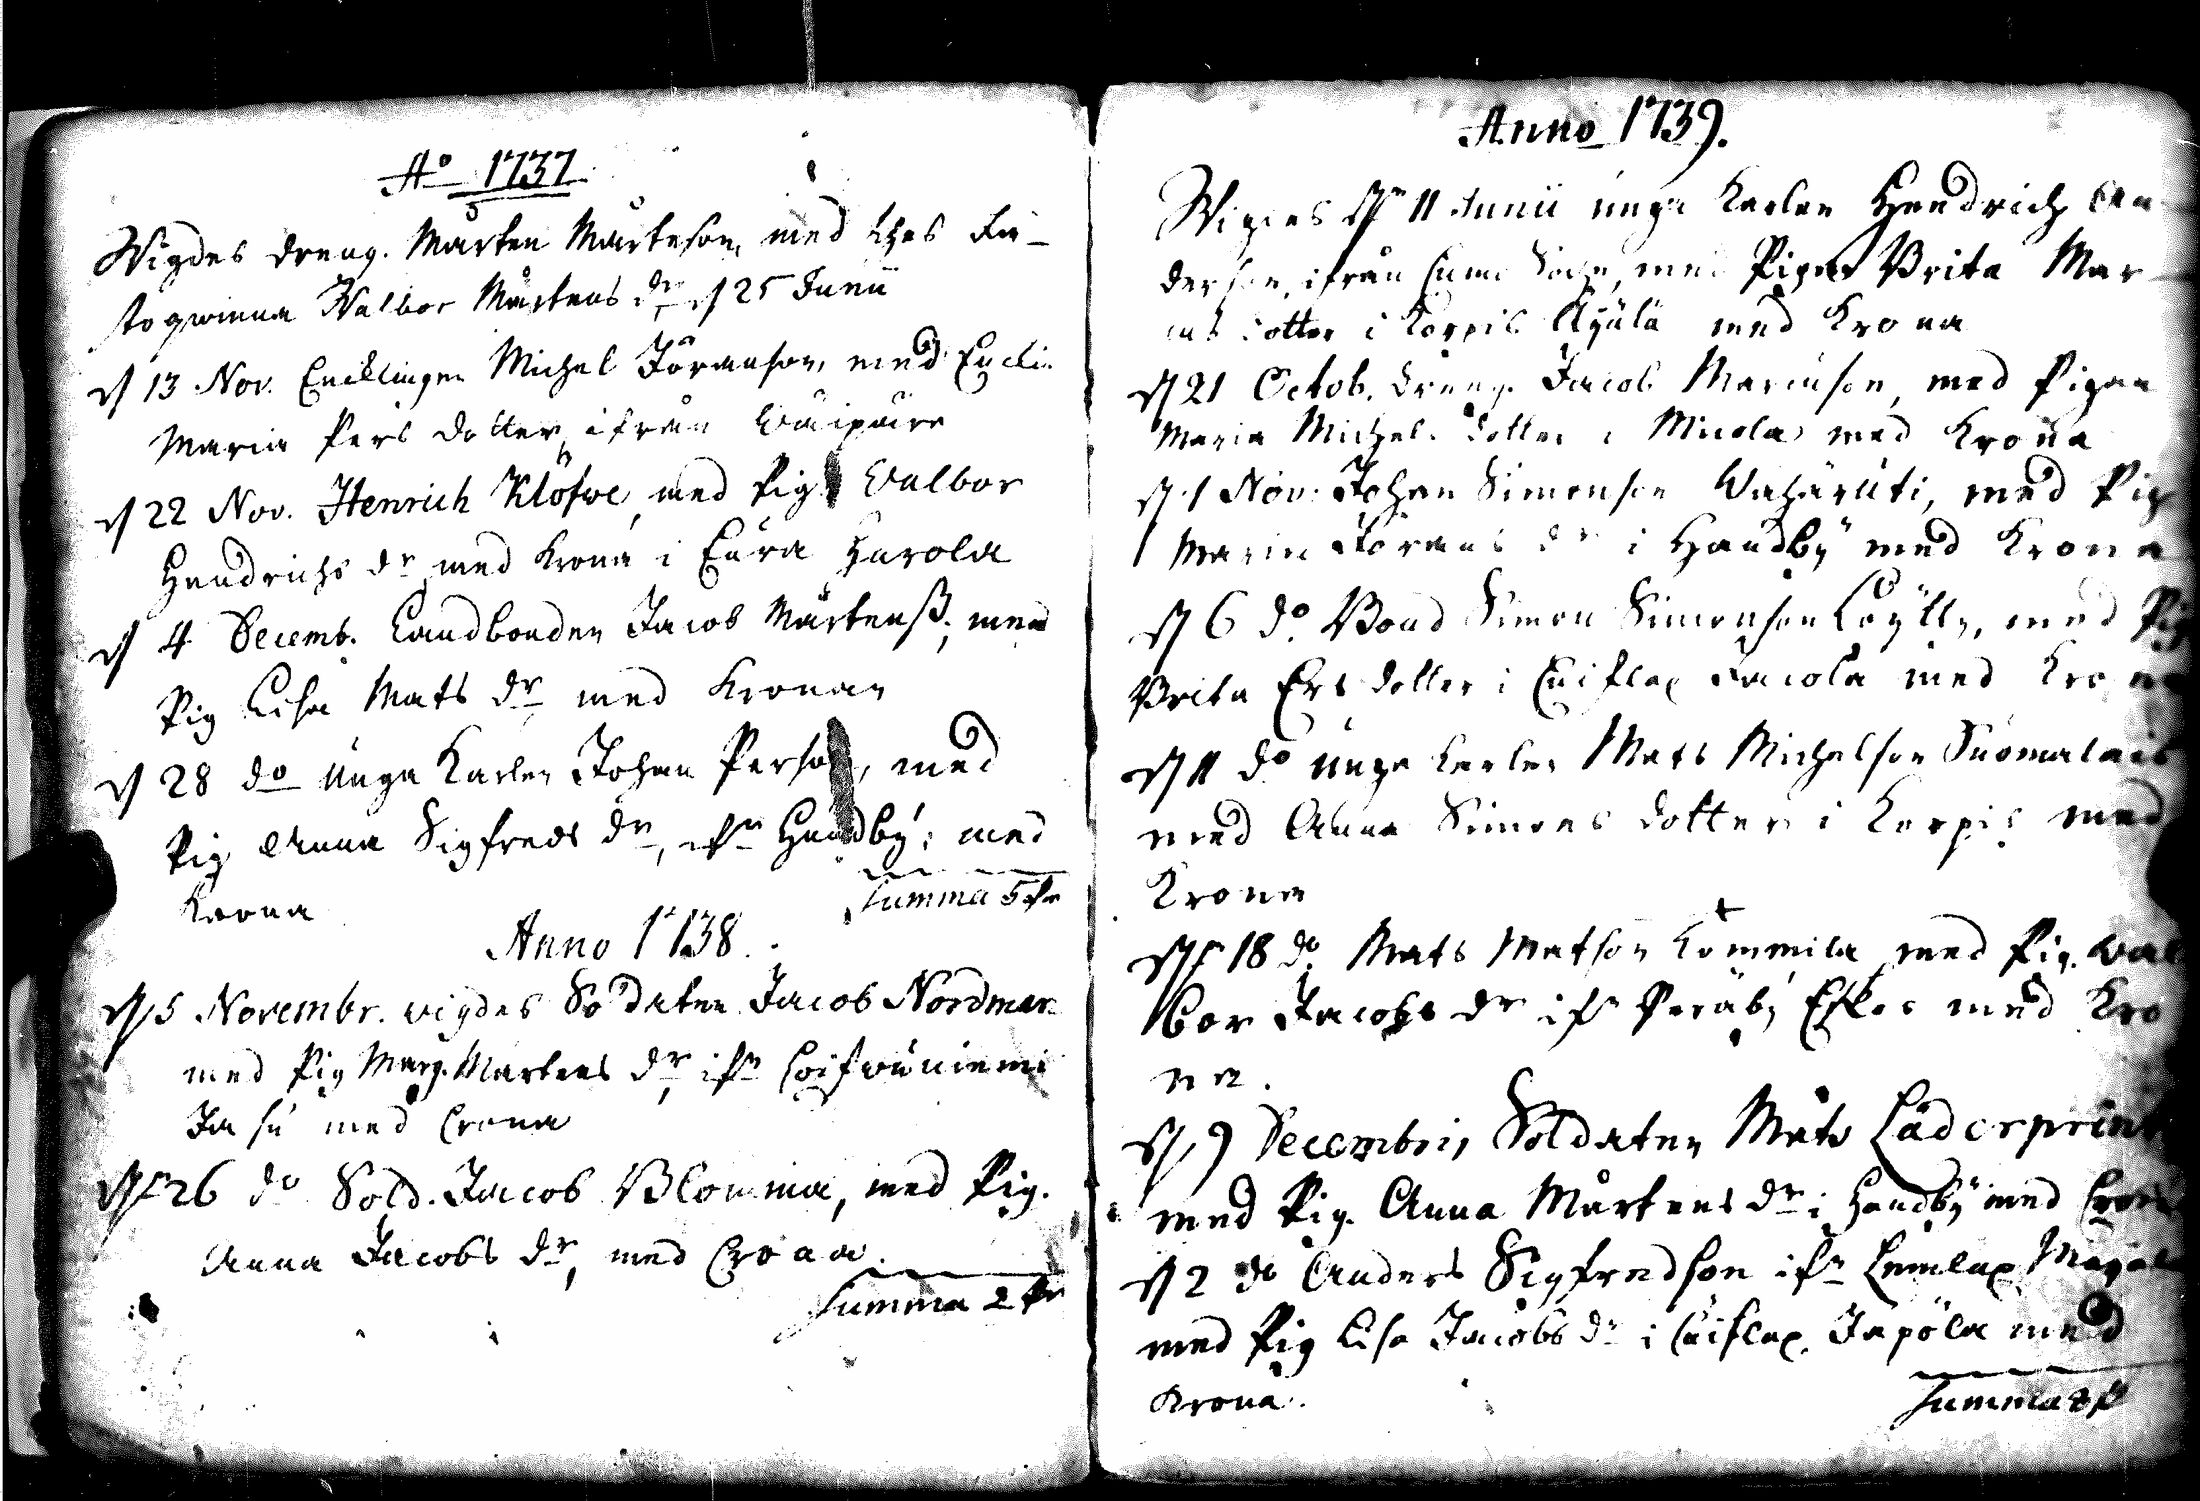 Ao 1737
Wigdes dreng. Mårten Mårteson, med thes Fä-
steqwinna Walbor Mårtens dr d 25 Junii
d 13 Nov. Encklingen Michel Jöranson, med Enckia
Maria Pers dotter ifrån
d 22 Nov. Henrich Klöfwe, med Pig. Walbor
Hendrichs dr med Krona i Eura Harola
d 4 Decemb. Landbonden Jacob Mårtenß. med
Pig Lisa Mats dr med Kronan
d 28 do unga Karlen Johan Person, med
Pig Anna Sigfreds dr, ifn Handby, med
Krona
Summa 5 pr
Anno 1738.
d 5 Novembr. vigdes Soldaten Jacob Nordman
med Pig Marg. Martens dr ifn
med Crona
dn 26 do Sold. Jacob Blomma, med Pig.
Anna Jacobs dr, med Crona.
Summa 2 pr
Anno 1739.
Wigdes dn 11 Junii unga Karlen Hendrich An
derson, ifrån Sochn, med Pigan Brita Mar
dotter i Korpis med Krona
d 21 Octob. dreng. Jacob Marcuson, med Pigan
Maria Michels dotter i Micola med Krona
d 1 Nov. Johan Simonson med Pig
Maria Jörans dr i Handby med Krona
d 6 do Bond Simon Simonson med Pig
Brita Ers dotter i Jacola med Krona
d 11 do unga karlen Mats Michelson Suomalais
med Anna Simons dotter i Korpis med
Krona
dn 18 do Mats Matson Kommila med Pig. Wal
bor Jacobs dr ifn Peräby med Kro
na.
d 9 Decembris Soldaten Mats Läderprint
med Pig. Anna Mårtens dr i Handby med Crona
d 2 do Anders Sigfredson ifn Lemlax
med Pig Lisa Jacobs dr i Japöla med
Krona.
Summa 8 p